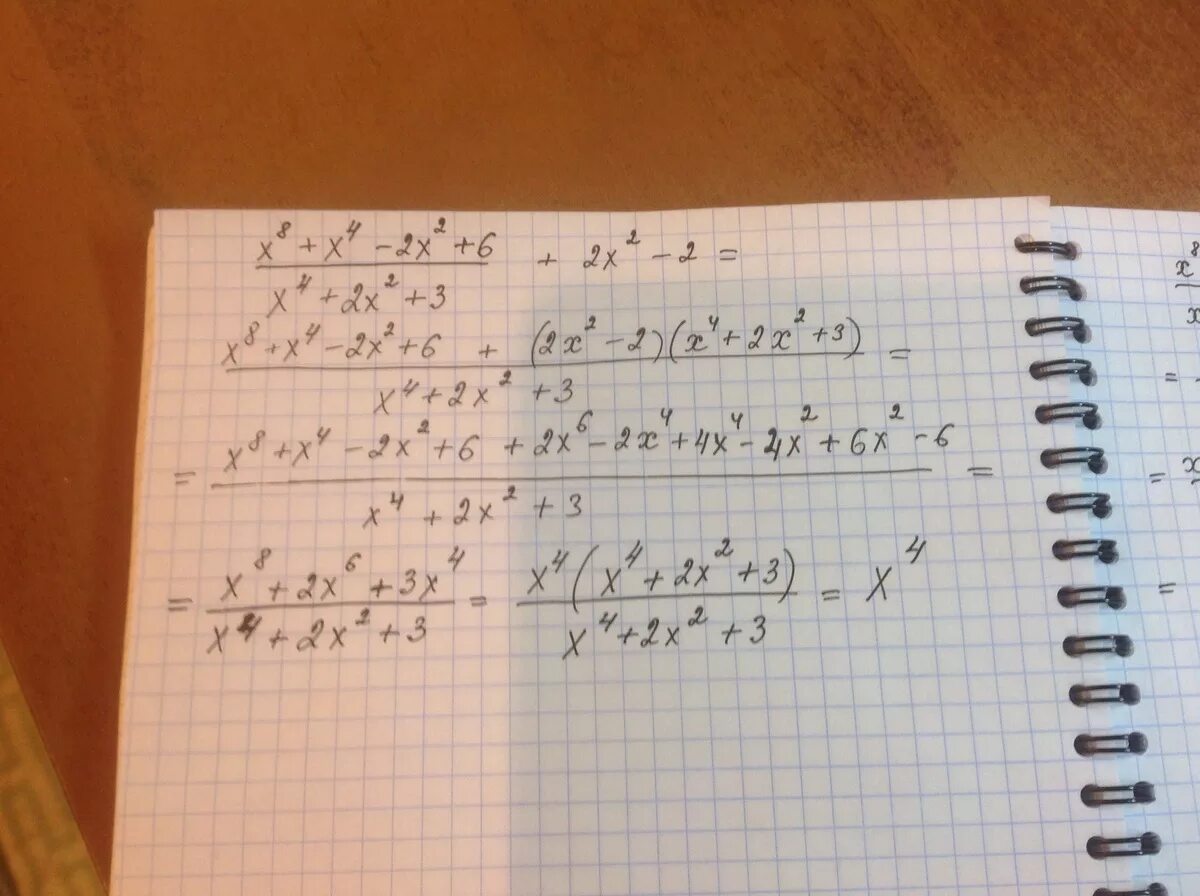 x⁸ + x⁴ - 2x² + 6 / x⁴ + 2x² + 3 + 2x² - 2 =
x⁸ + x⁴ - 2x² + 6 + (2x² - 2)(x⁴ + 2x² + 3) / x⁴ + 2x² + 3 =
= x⁸ + x⁴ - 2x² + 6 + 2x⁶ - 2x⁴ + 4x⁴ - 4x² + 6x² - 6 / x⁴ + 2x² + 3 =
= x⁸ + 2x⁶ + 3x⁴ / x⁴ + 2x² + 3 = x⁴(x⁴ + 2x² + 3) / x⁴ + 2x² + 3 = x⁴
x⁸
x
=
= x
=